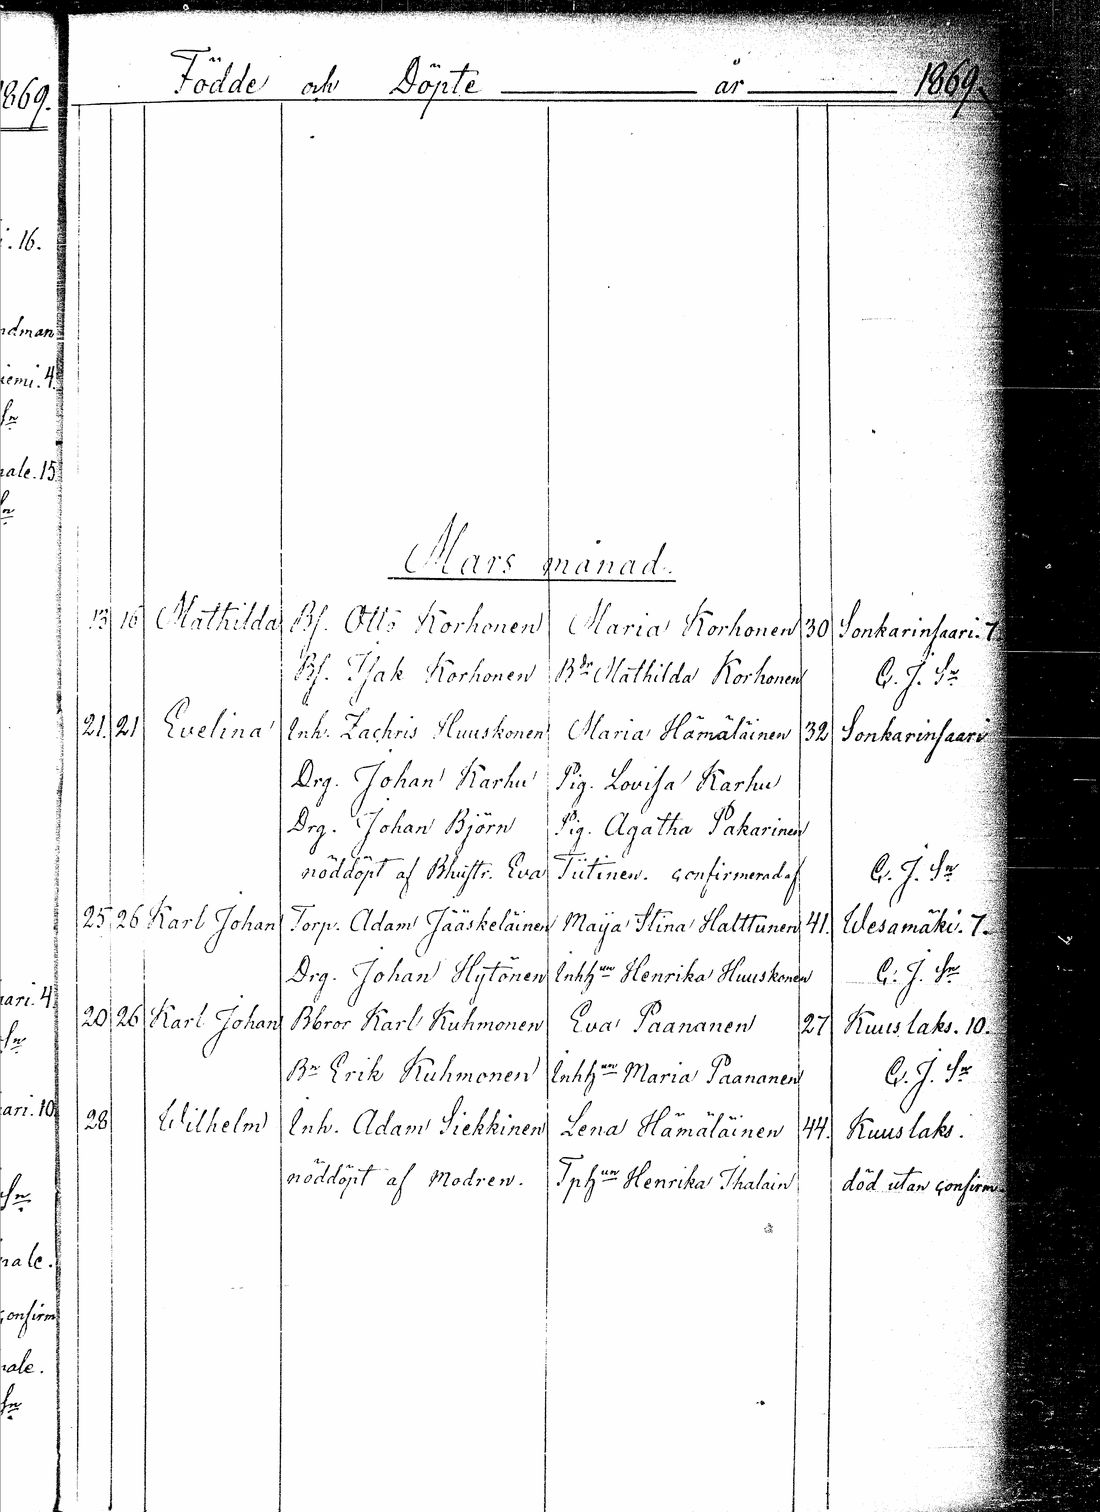 1869.
Födde och Döpte år 1869.
i. 16.
ndman
iemi. 4.
Sn
nale. 15
Sn
Mars månad.
13 16 Mathilda Bs. Otto Korhonen Maria Korhonen 30 Sonkarinsaari. 7.
Bs. Isak Korhonen Bdr Mathilda Korhonen C. J. Sn
21. 21 Evelina Inh. Zachris Huuskonen Maria Hämäläinen 32 Sonkarinsaari
Drg. Johan Karhu Pig. Lovisa Karhu
Drg. Johan Björn Pig. Agatha Pakarinen
nöddöpt af Bhustr. Eva Tiitinen. confirmerad af C. J. Sn
25 26 Karl Johan Torp. Adam Jääskeläinen Maija Stina Halttunen 41. Wesamäki. 7.
Drg. Johan Hytönen Inhhun Henrika Huuskonen C. J. Sn
ari. 4
20 26 Karl Johan Bbror Karl Kuhmonen Eva Paananen 27 Kuuslaks. 10.
Sn
Bn Erik Kuhmonen Inhhun Maria Paananen C. J. Sn
ari. 10
28 Wilhelm Inh. Adam Siekkinen Lena Hämäläinen 44. Kuuslaks.
nöddöpt af modren. Tphun Henrika Ihalain död utan confirm.
Sn
nale.
confirm
nale.
Sn